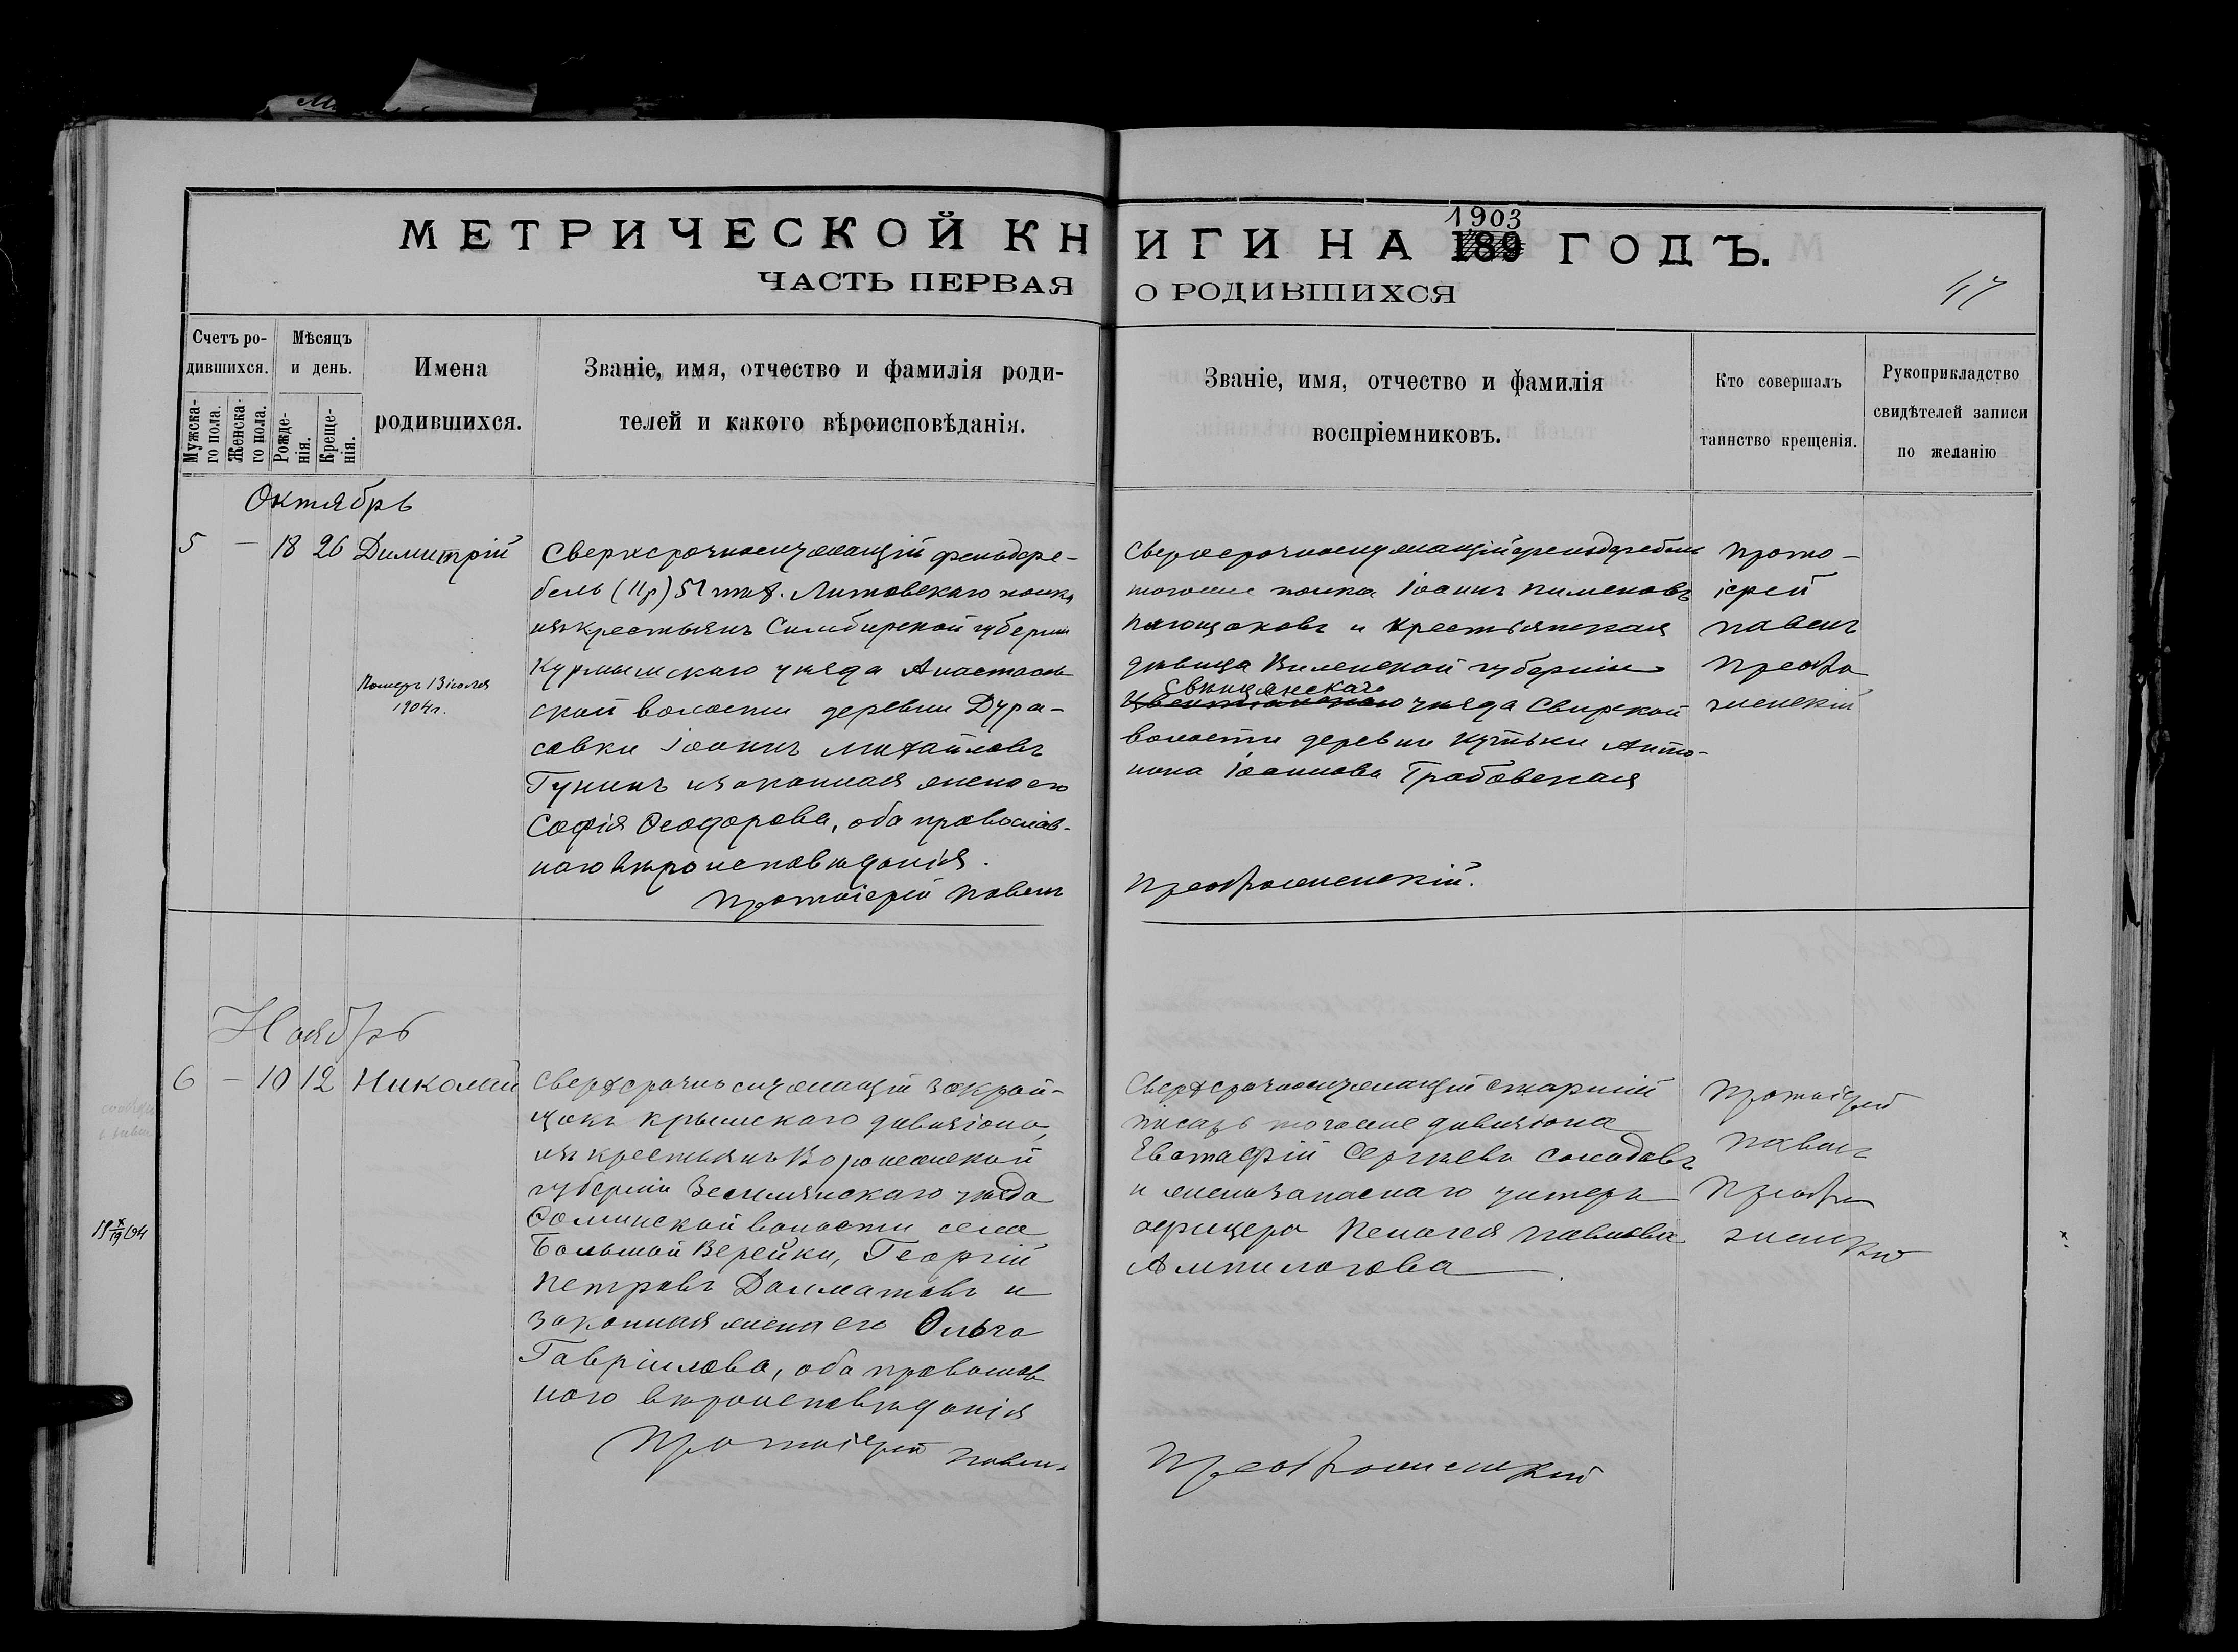 МЕТРИЧЕСКОЙ КНИГИ НА 1903 ГОДЪ.
ЧАСТЬ ПЕРВАЯ О РОДИВШИХСЯ
47
Счетъ ро-
дившихся.
Мужска-
го пола.
Женска-
го пола.
Мѣсяцъ
и день.
Рожде-
нія.
Креще-
нія.
Имена
родившихся.
Званіе, имя, отчество и фамилія роди-
телей и какого вѣроисповѣданія.
Званіе, имя, отчество и фамилія
воспріемниковъ.
Кто совершалъ
таинство крещенія.
Рукоприкладство
свидѣтелей записи
по желанію
Октябрь
5 — 18 26 Димитрій
Померъ 13 іюля
1904 г.
Сверхсрочнослужащій фельдфе-
бель 51 Литовскаго полка
изъ крестьянъ Симбирской губерніи
Курмышскаго уѣзда Анастасов-
ской волости деревни Дура-
совки Іоаннъ Михайловъ
Гунинъ и законная жена его
Софія Ѳеодорова, оба православ-
наго вѣроисповѣданія.
Протоіерей Павелъ
Сверхсрочнослужащій фельдфебель
тогоже полка Іоаннъ Пименовъ
и крестьянская
дѣвица Виленской губерніи
Свенцянскаго
уѣзда Свирской
волости деревни Кутьки Анто-
нина Іоаннова Грабовская
Преображенскій.
Прото-
іерей
Павелъ
Преобра
женскій
Ноябрь
6 — 10 12 Николай
Сверхсрочнослужащій закрой-
щикъ Крымскаго дивизіона,
изъ крестьянъ Воронежской
губерніи Землянскаго уѣзда
волости села
Большой Верейки, Георгій
Петровъ Далматовъ и
законная жена его Ольга
Гавріилова, оба православ
наго вѣроисповѣданія
Протоіерей Павелъ
Сверхсрочнослужащій старшій
писарь тогоже дивизіона
Евстафій Сергѣевъ Солодовъ
и жена запаснаго унтеръ
офицера Пелагея Павлова
Ампилогова
Преображенскій
Протоіерей
Павелъ
Преобра
женскій